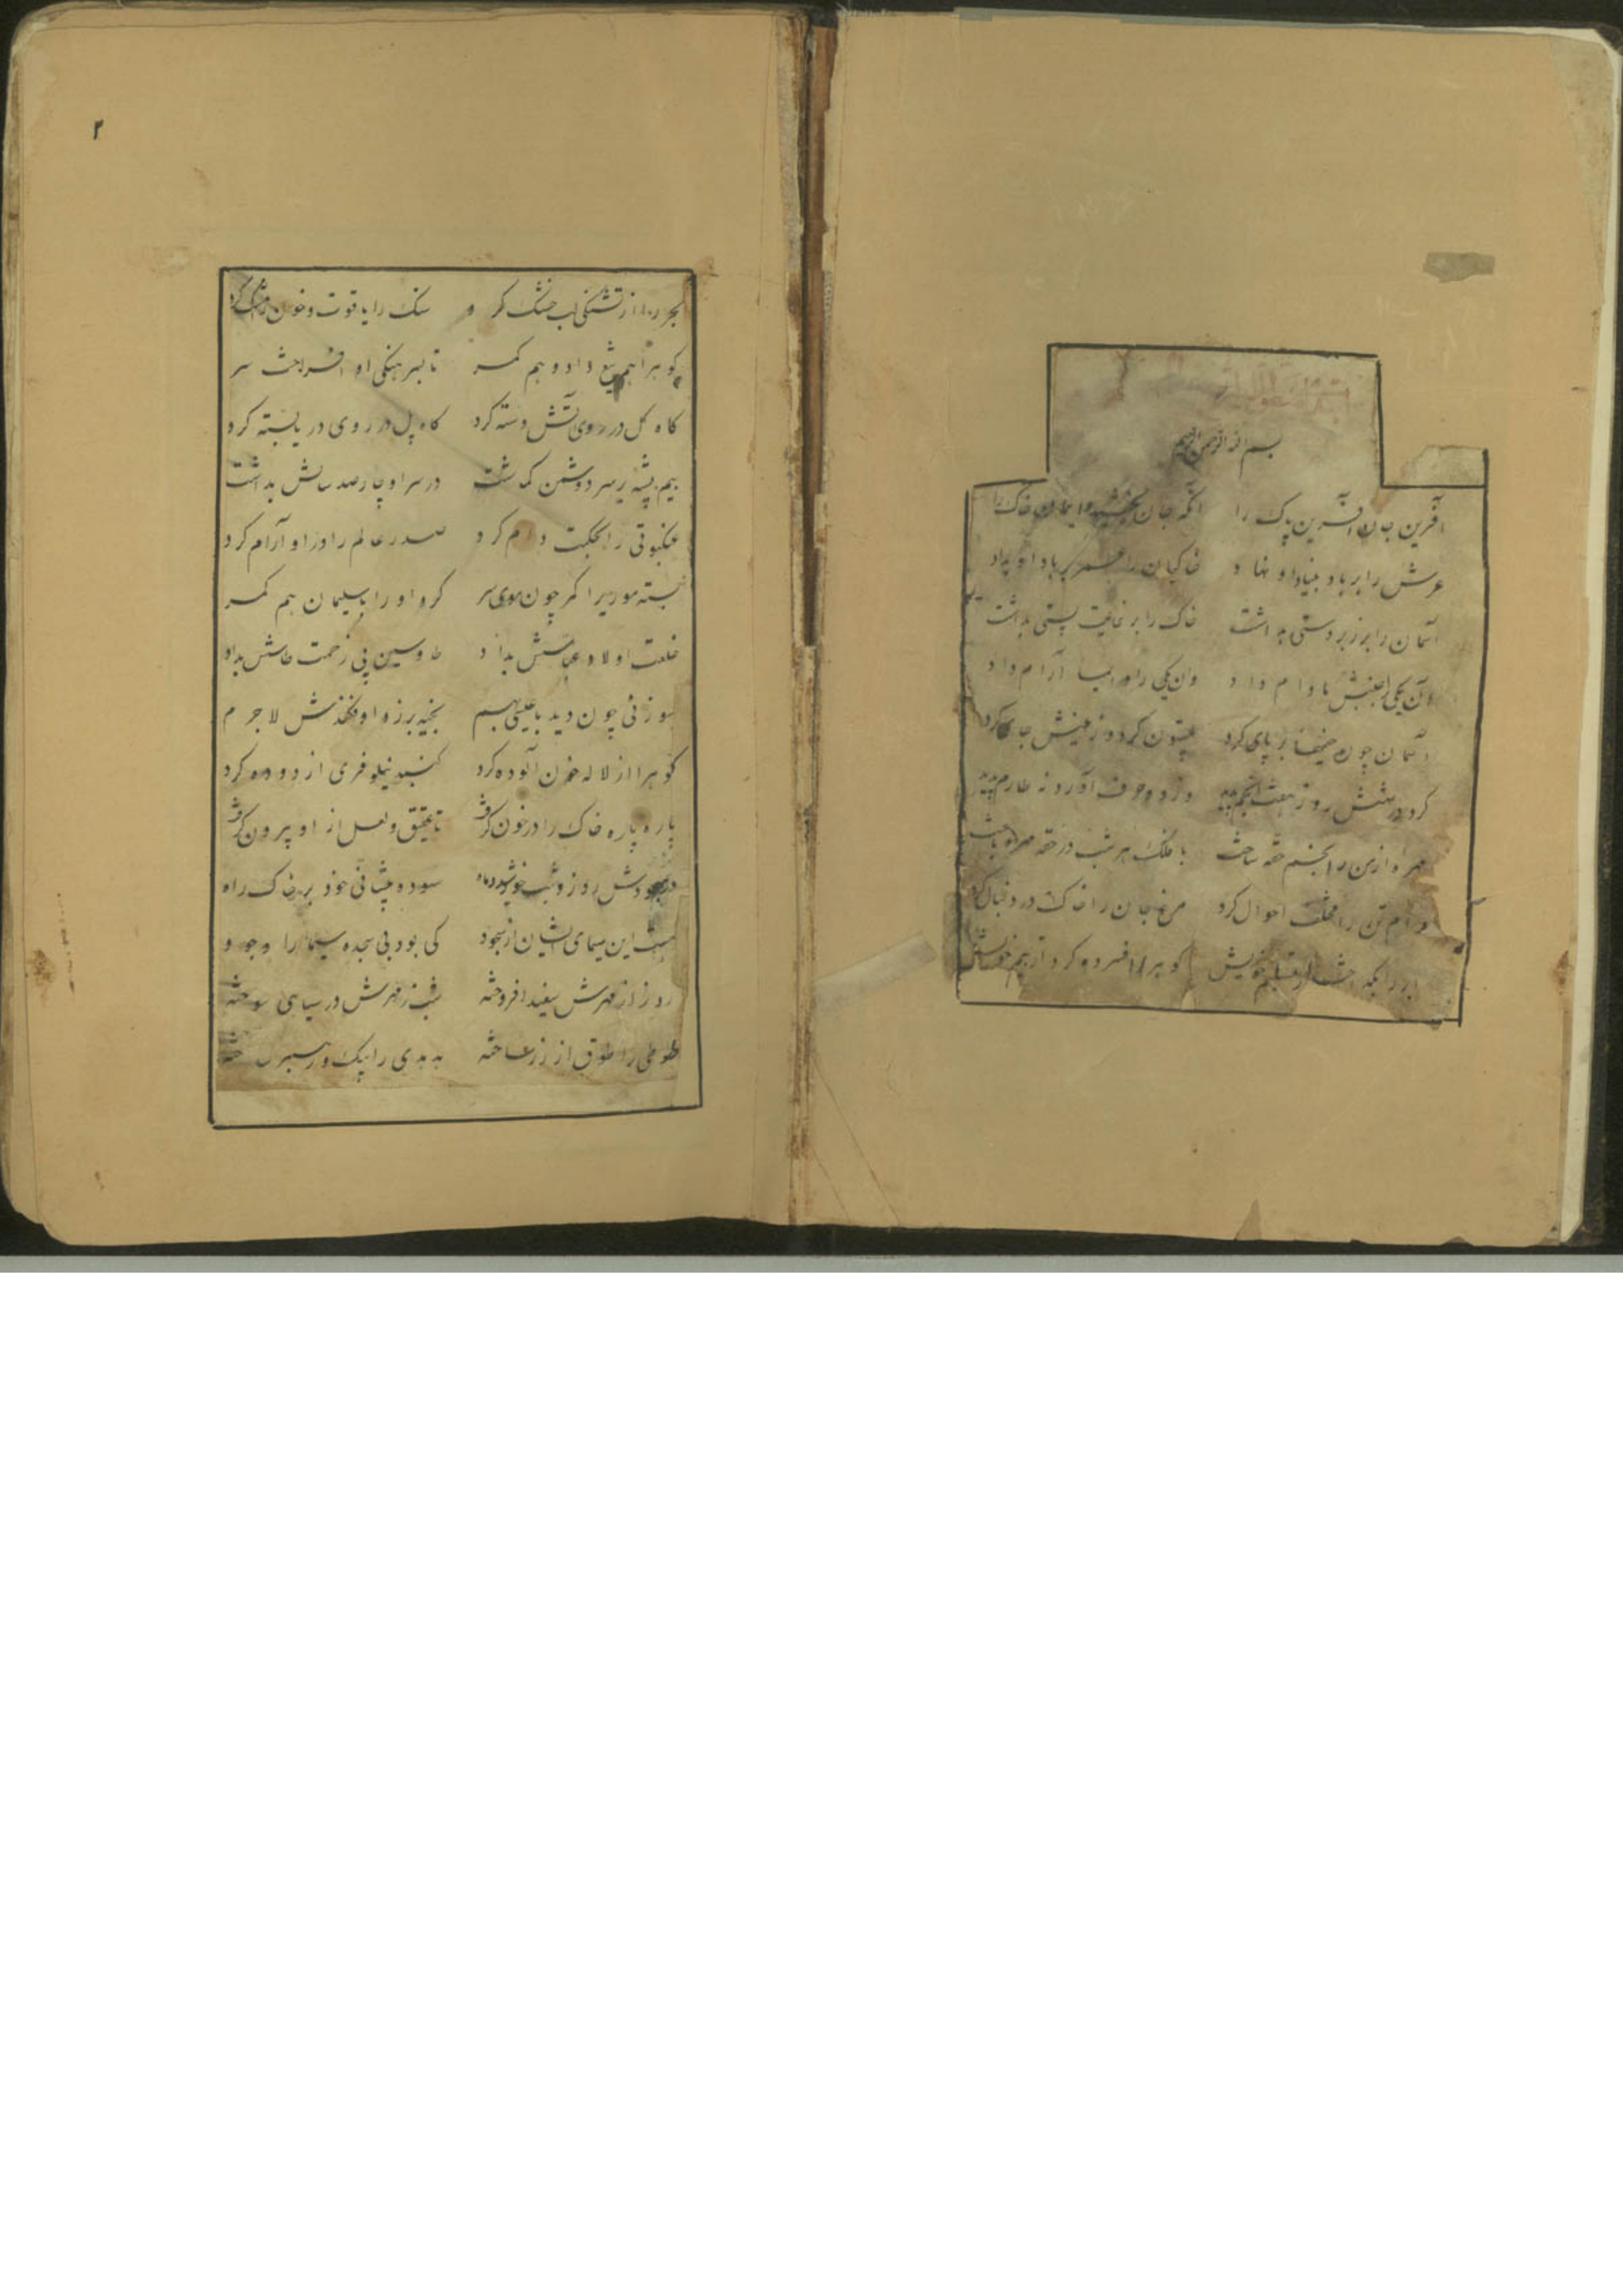 بسم الله الرحمن الرحیم
آفرین جان آفرین پاک را آنکه جان بخشید و ایمان خاک را
عرش را بر باد بنیاد او نهاد خاکیان را عمر بر باد او بداد
آسمان را بر زبردستی بداشت خاک را بر غایت پستی بداشت
آن یکی را جنبش مادام داد وان یکی را دایما آرام داد
آسمان چون خیمها بر پای کرد بیستون کرد و زمینش جای کرد
کرد در شش روز هفت انجم پدید وز دو حرف آورد نه طارم پدید
مهره از انجم حقه ساخت با فلک هر شب در حقه مهره باخت
دام تن را مختلف احوال کرد مرغ جان را خاک در دنبال کرد
خویش کوه را افسرده کرد از بیم خویش
۲
بحر را از تشنکی لب خشک کرد سنک را یاقوت و خون را مشک کرد
کوه را هم تیغ داد و هم کمر تا بسرهنکی او افراخت سر
کاه کل در روی آتش دسته کرد کاه پل در روی دریا بسته کرد
نیم پشه بر سر دشمن کماشت در سر او چارصد سالش بداشت
عنکبوتی را بحکمت دام کرد صدر عالم را درو آرام کرد
بسته موریرا کمر چون موی سر کرد او را با سلیمان هم کمر
خلعت اولاد عباسش بداد طا و سین بی زحمت طاسش بداد
سوزنی چون دید با عیسی بهم بخیه بر رو او فکندش لاجرم
کوه را از لاله خون آلوده کرد کنبد نیلوفری از دوده کرد
پاره پاره خاک را در خون کرفت تا عقیق و لعل از او بیرون کرفت
در سجودش روز و شب خورشید و ماه سوده پیشانی خود بر خاک راه
هست این سیمای ایشان از سجود کی بود بی سجده سیما را وجود
روز از مهرش سفید افروخته شب ز قهرش در سیاهی سوخته
طوطی را طوق از زر ساخته هدهدی را پیک و رهبر ساخته